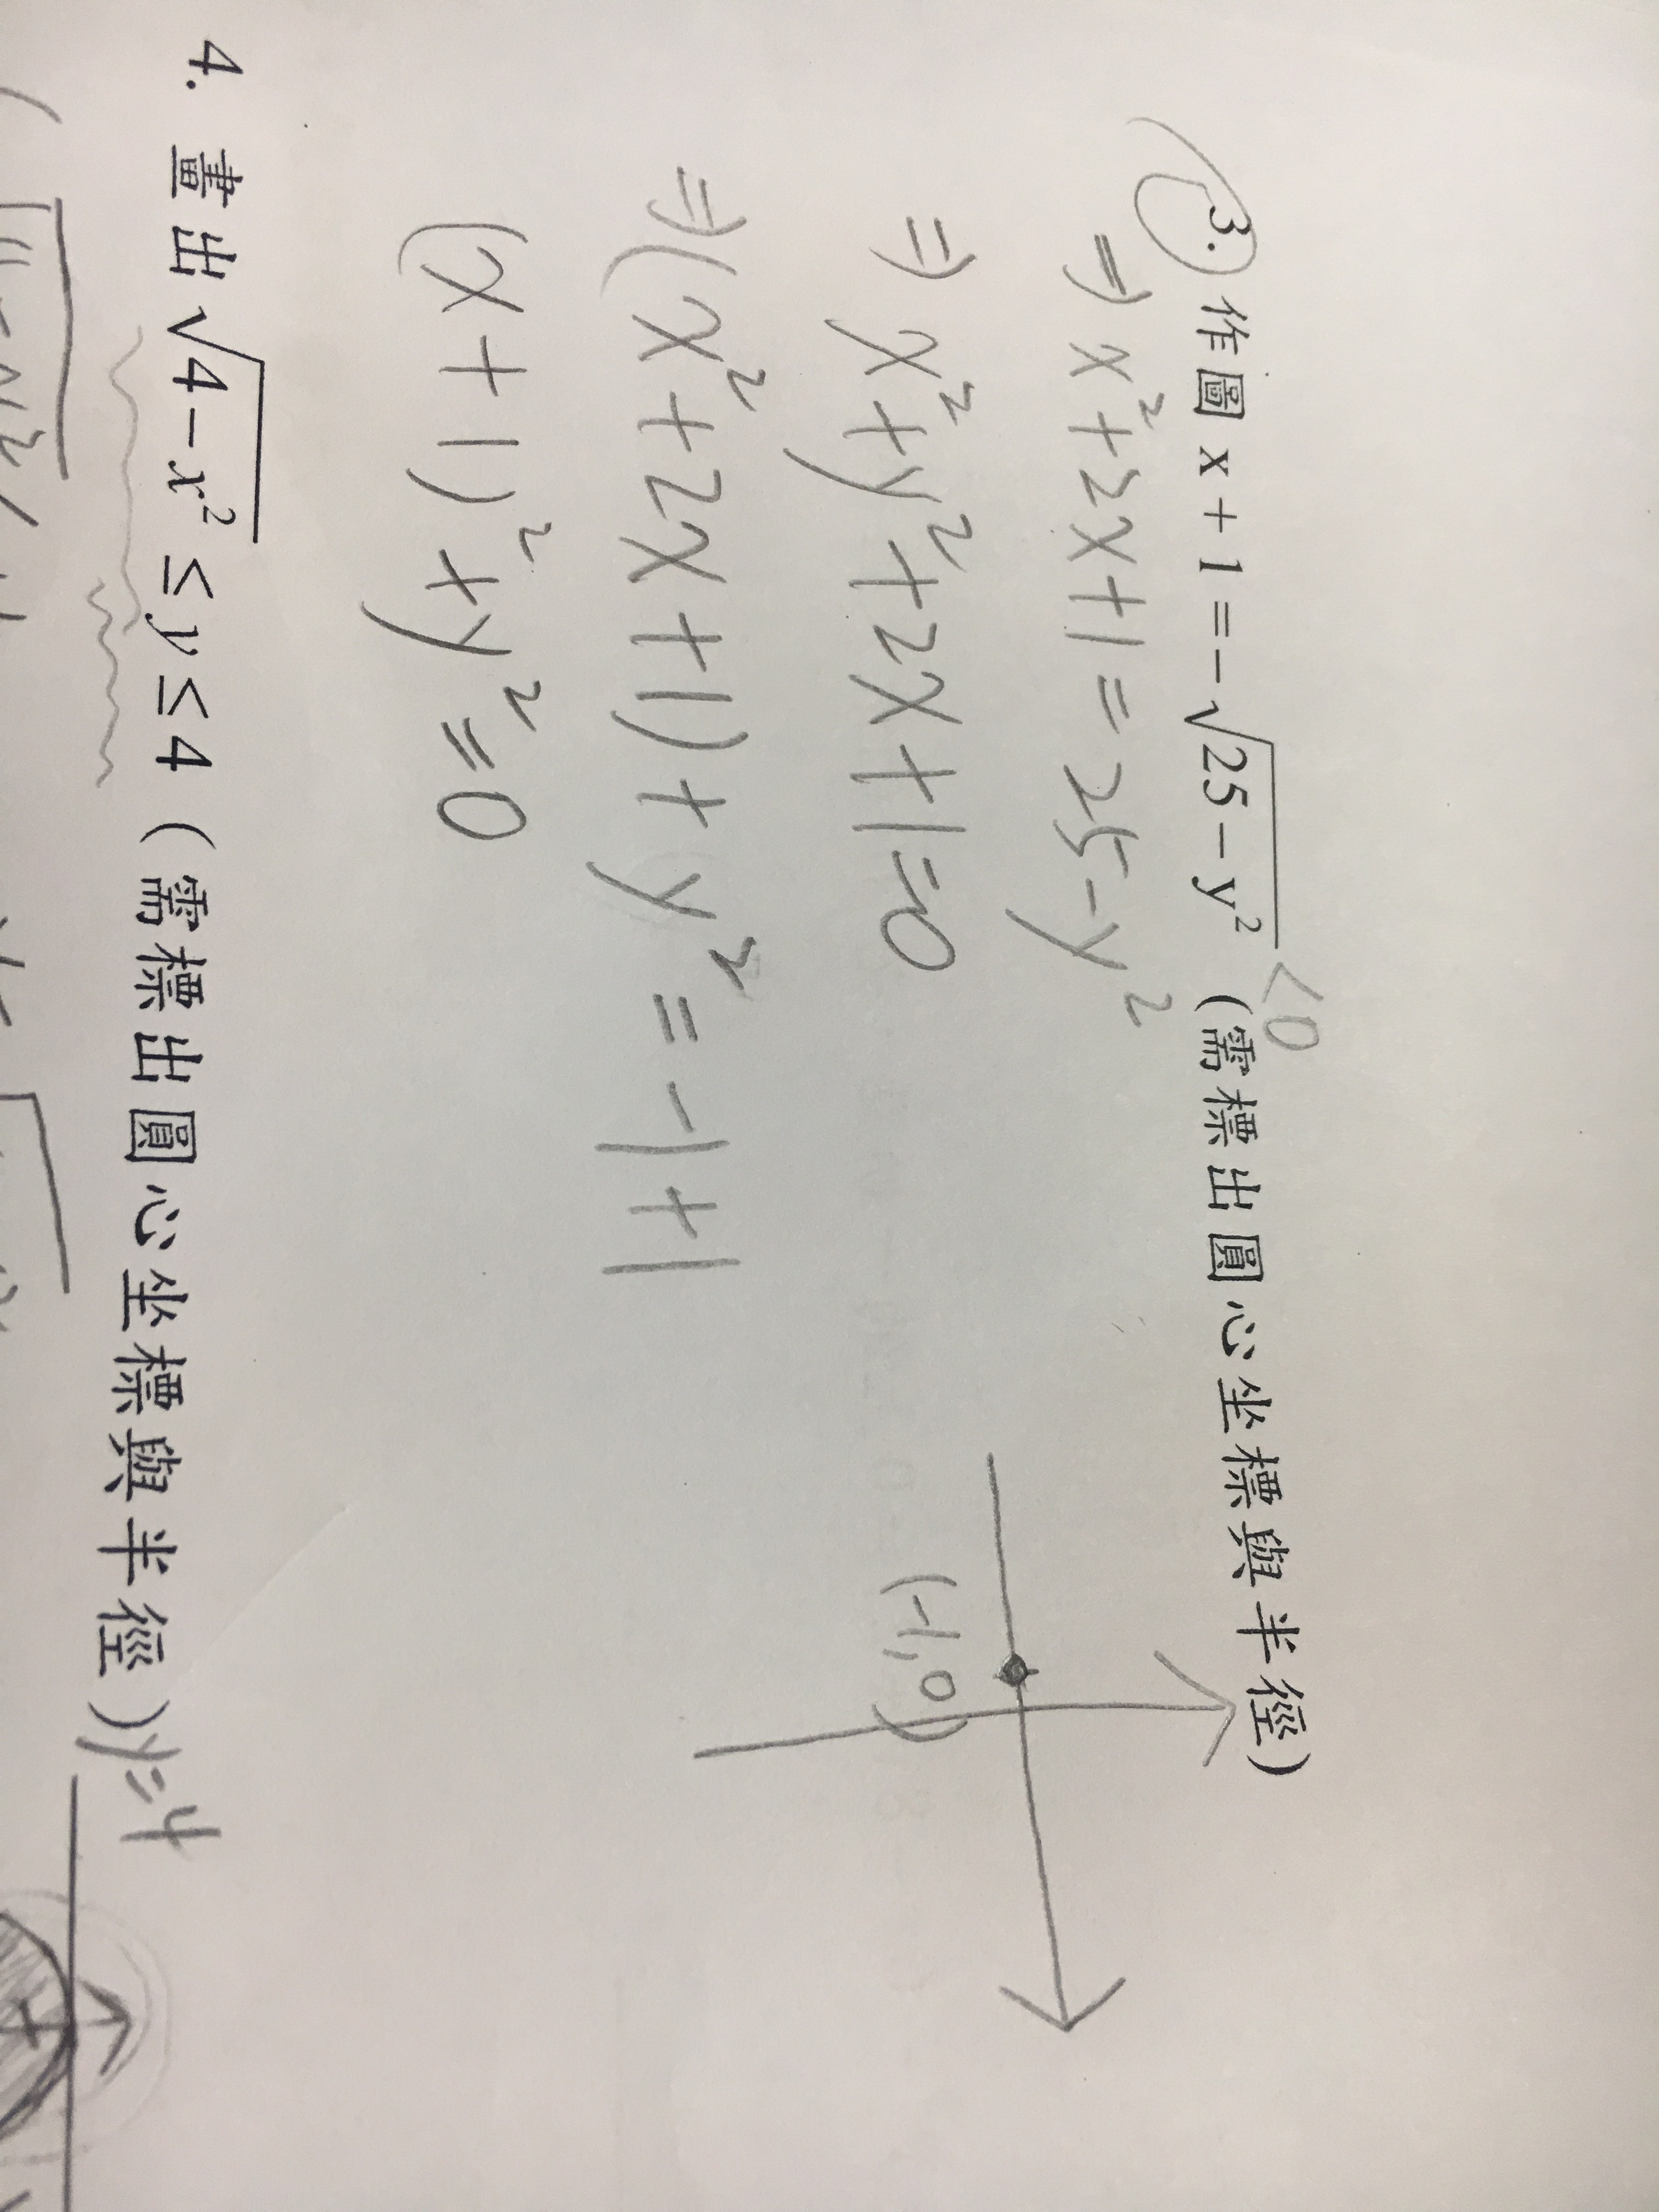 3. 作圖 x + 1 = -√25 - y² <0 (需標出圓心坐標與半徑)
=> x² + 2x + 1 = 25 - y²
=> x² + y² + 2x + 1 = 0
=> (x² + 2x + 1) + y² = -1 + 1
(x + 1)² + y² = 0
(-1, 0)
4. 畫出 √4 - x² ≤ y ≤ 4 (需標出圓心坐標與半徑) y = 4